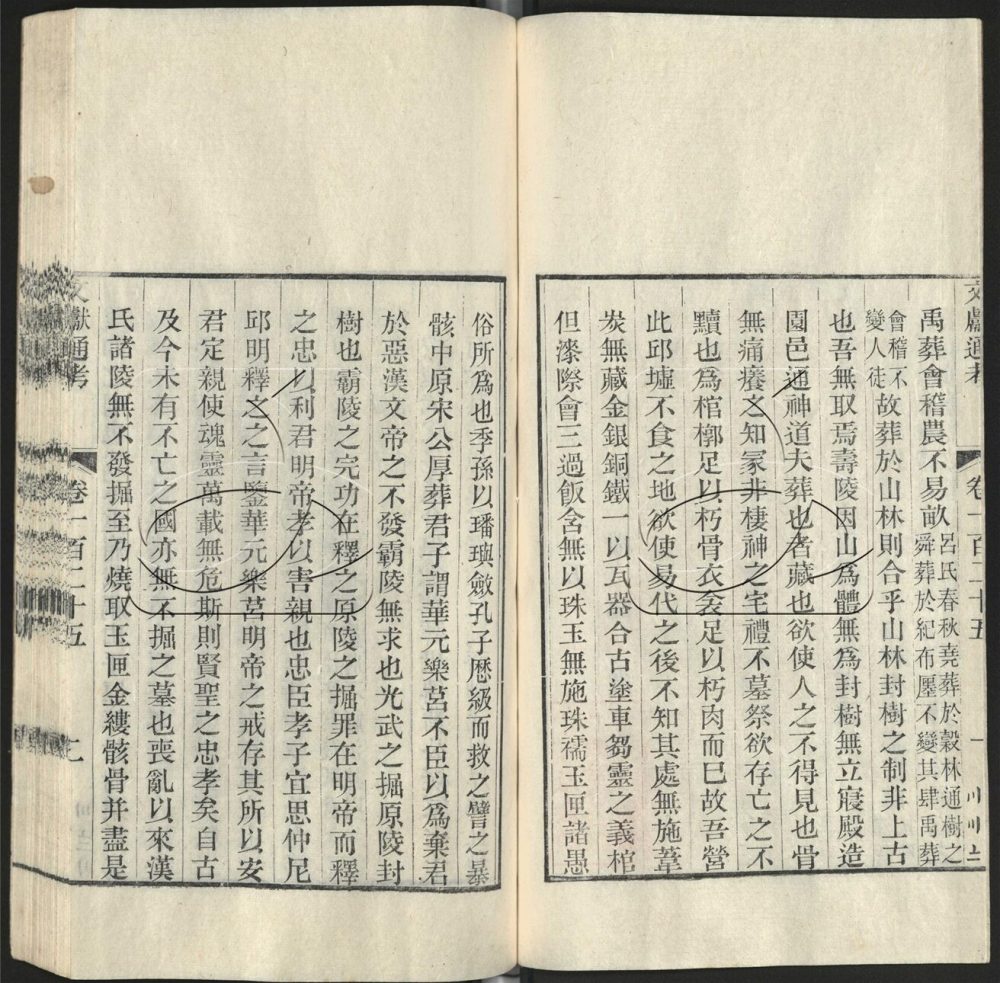 文獻通考
卷一百二十五
禹葬會稽農不易畝呂氏春秋堯葬於穀林通樹之
舜葬於紀布廛不變其肆禹葬
會稽不
變人徒故葬於山林則合乎山林封樹之制非上古
也吾無取焉壽陵因山爲體無爲封樹無立寢殿造
園邑通神道夫葬也者藏也欲使人之不得見也骨
無痛癢之知冢非棲神之宅禮不墓祭欲存亡之不
黷也爲棺槨足以朽骨衣衾足以朽肉而已故吾營
此邱墟不食之地欲使易代之後不知其處無施葦
炭無藏金銀銅鐵一以瓦器合古塗車芻靈之義棺
但漆際會三過飯含無以珠玉無施珠襦玉匣諸愚
俗所爲也季孫以璠璵斂孔子歷級而救之譬之暴
骸中原宋公厚葬君子謂華元樂莒不臣以爲棄君
於惡漢文帝之不發霸陵無求也光武之掘原陵封
樹也霸陵之完功在釋之原陵之掘罪在明帝而釋
之忠以利君明帝孝以害親也忠臣孝子宜思仲尼
邱明釋之之言鑒華元樂莒明帝之戒存其所以安
君定親使魂靈萬載無危斯則賢聖之忠孝矣自古
及今未有不亡之國亦無不掘之墓也喪亂以來漢
氏諸陵無不發掘至乃燒取玉匣金縷骸骨并盡是
文獻通考
卷一百二十五
七